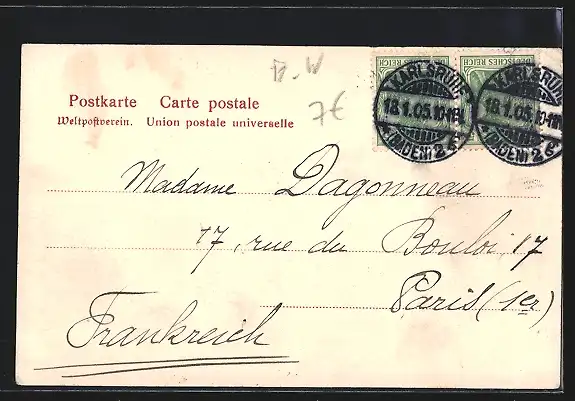 B.W
7€
DEUTSCHES REICH DEUTSCHES REICH
KARLSRUHE
18.1.05.10-11V.
(BADEN) 2
KARLSRUHE
18.1.05.10-11V.
(BADEN) 2
Postkarte Carte postale
Weltpostverein. Union postale universelle
Madame Dagonneau
17, rue du Bouloi, 17
Paris (1er)
Frankreich